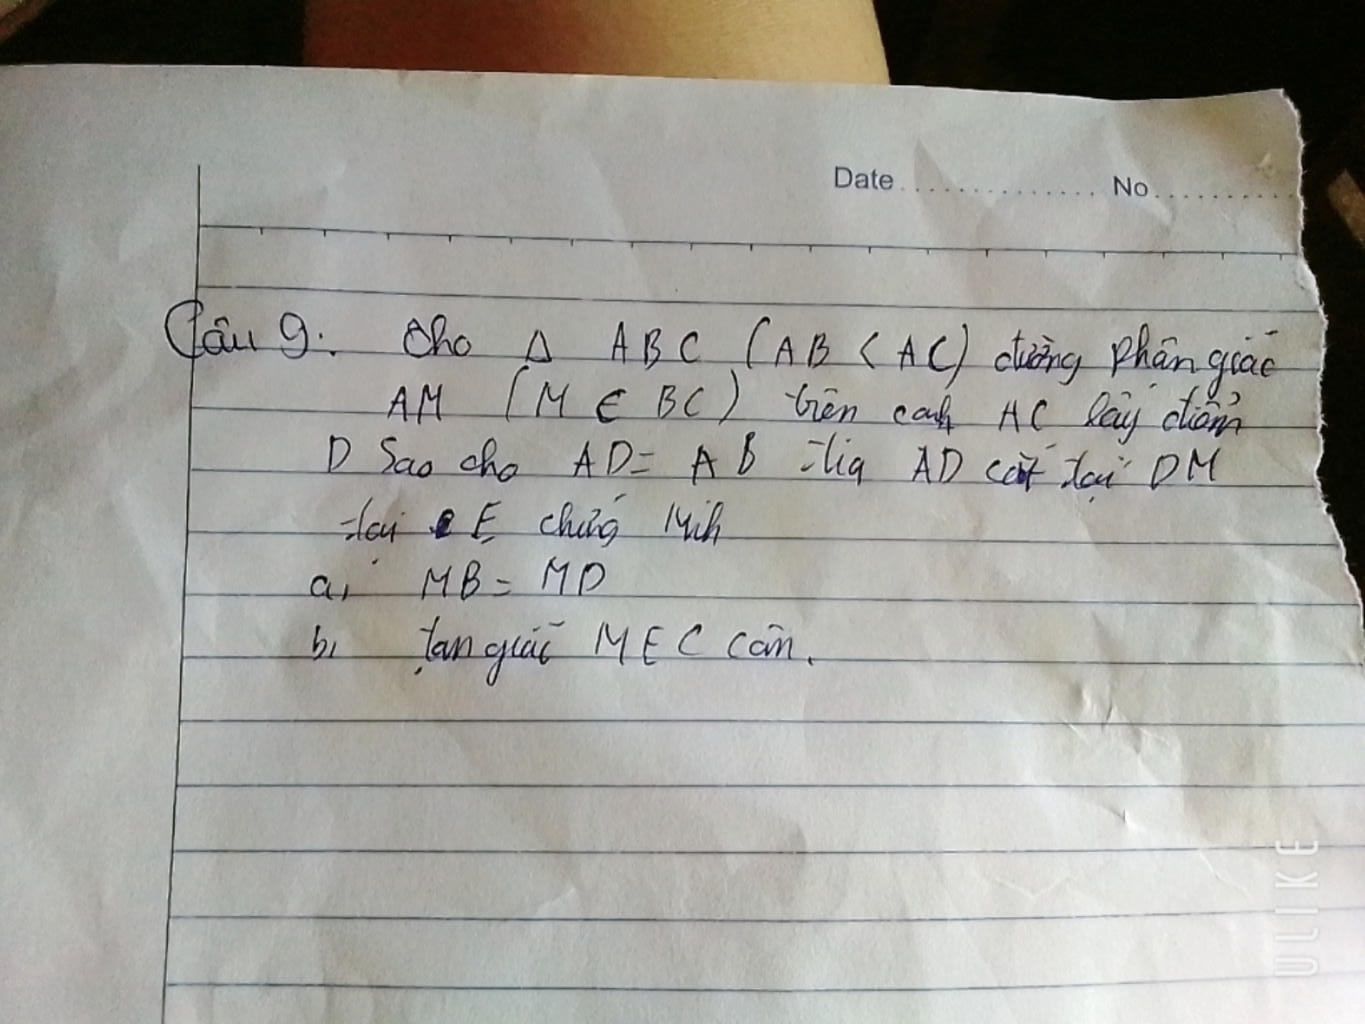 Date .............. No ..............
Câu 9. Cho Δ ABC (AB < AC) đường phân giác
AM (M ∈ BC) trên cạnh AC lấy điểm
D Sao cho AD = AB tia AD cắt tại DM
tại E chứng Minh
a, MB = MD
b, tan giác MEC cân.
ULIKE